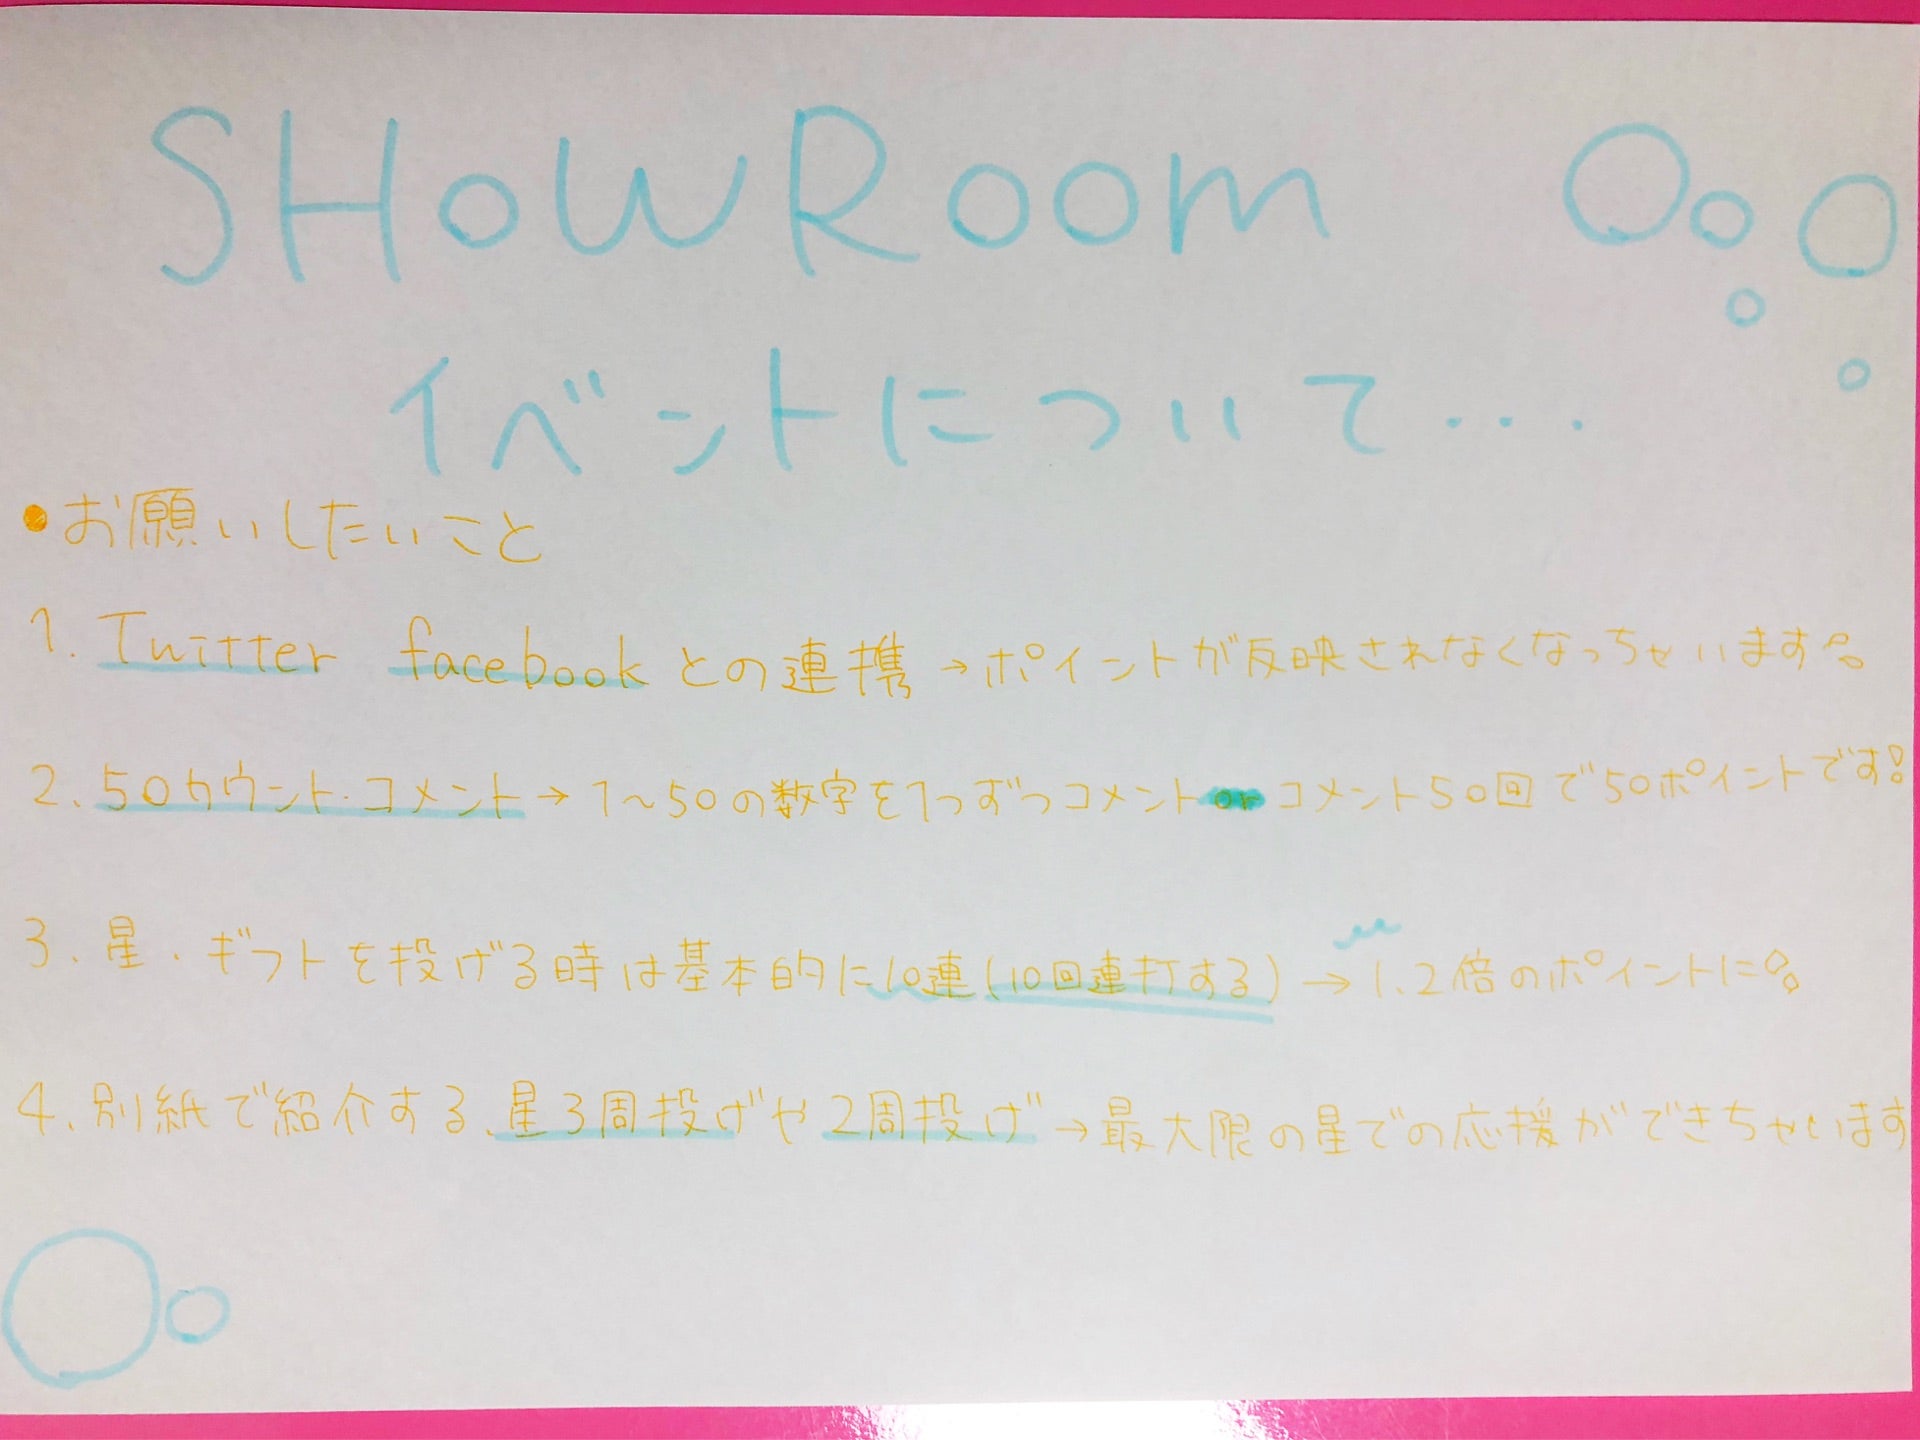 SHOWROOM
イベントについて...
●お願いしたいこと
1. Twitter facebookとの連携→ポイントが反映されなくなっちゃいます!
2. 50カウント・コメント→1〜50の数字を1つずつコメントorコメント50回で50ポイントです!
3. 星・ギフトを投げる時は基本的に10連(10回連打する)→1.2倍のポイントに!
4. 別紙で紹介する、星3周投げや2周投げ→最大限の星での応援ができちゃいます